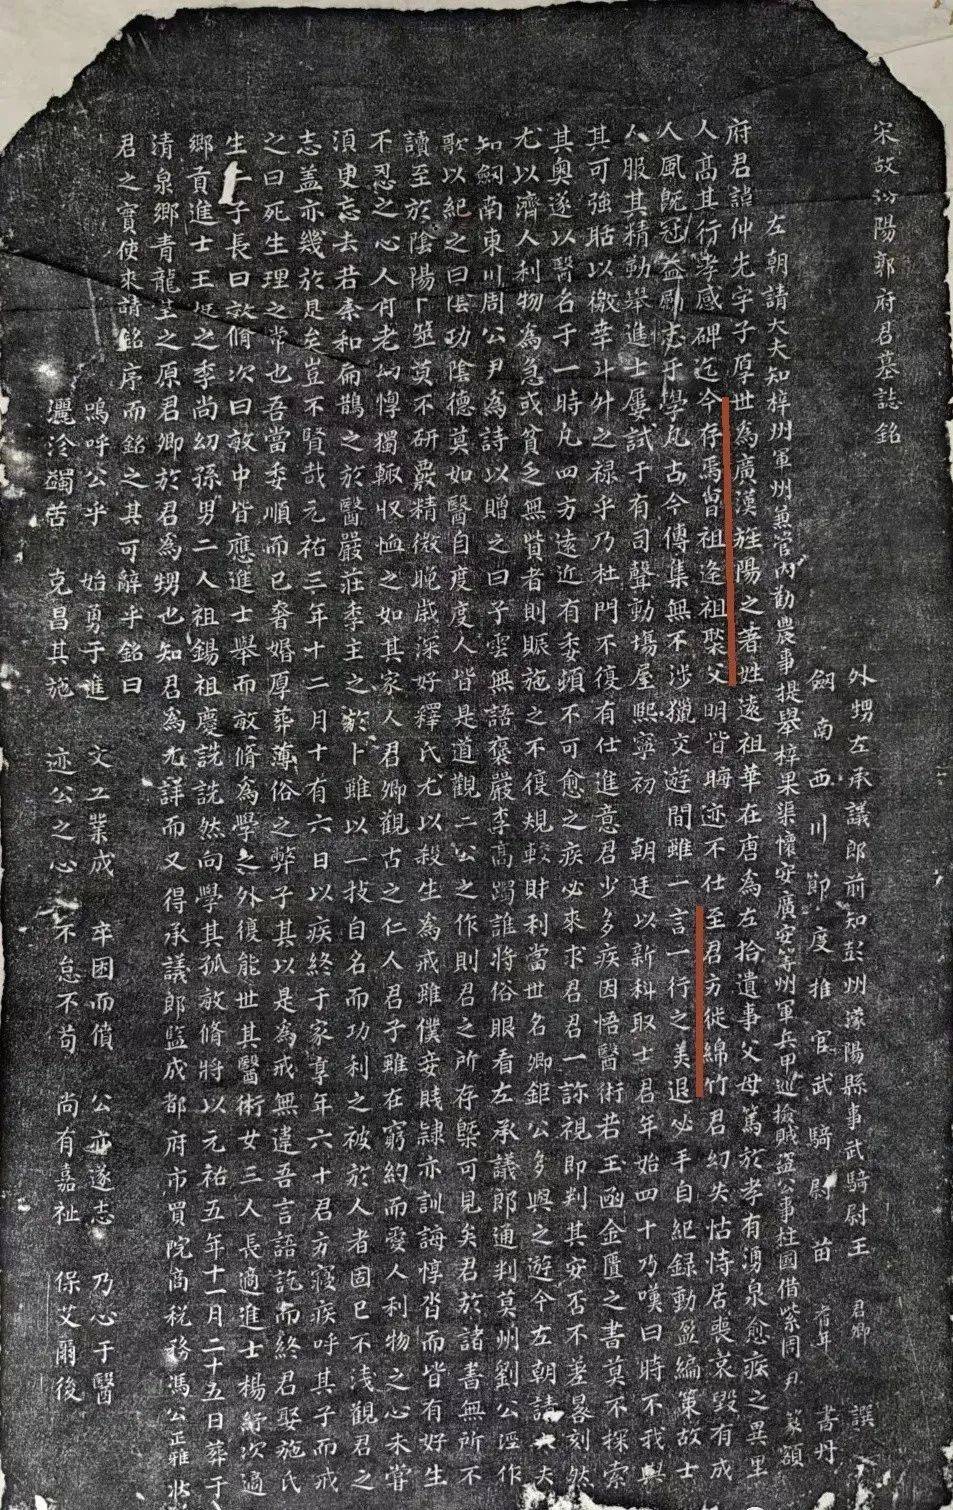 宋故汾陽郭府君墓誌銘
外甥左承議郎前知彭州濛陽縣事武騎尉王君卿譔
劒南西川節度推官武騎尉苗書丹
左朝請大夫知梓州軍州兼管內勸農事提舉梓果渠懷安廣安等州軍兵甲巡檢賊盜公事柱國借紫周尹篆額
府君諱仲先字子厚世為廣漢雒陽之著姓遠祖華在唐為左拾遺事父母篤於孝有湧泉愈疾之異里
人高其行孝感碑迄今存焉曾祖逢祖聚父明皆晦迹不仕至君方徙綿竹君幼失怙恃居喪哀毀有成
人風既冠益勵志于學凡古今傳集無不涉獵交遊間雖一言一行之美退必手自紀録動盈編策故士
人服其精勤舉進士屢試于有司聲動場屋熙寧初朝廷以新科取士君年始四十乃嘆曰時不我與
其可強聒以徼幸斗升之禄乎乃杜門不復有仕進意君少多疾因悟醫術若玉函金匱之書莫不探索
其奧遂以醫名于一時凡四方遠近有委頓不可愈之疾必來求君君一診視即判其安否不差晷刻然
尤以濟人利物為急或貧乏無貲者則賑施之不復規較財利當世名卿鉅公多與之遊今左朝請大夫
知劒南東川周公尹為詩以贈之曰子雲無語褒嚴李高躅誰將俗眼看左承議郎通判莫州劉公涇作
歌以紀之曰陰功陰德莫如醫自度度人皆是道觀二公之作則君之所存槩可見矣君於諸書無所不
讀至於陰陽卜筮莫不研覈精微晚歲深好釋氏尤以殺生為戒雖僕妾賎隷亦訓誨惇沓而皆有好生
不忍之心人有老幼惸獨輙収恤之如其家人君卿觀古之仁人君子雖在窮約而愛人利物之心未甞
湏臾忘去若秦和扁鵲之於醫嚴莊李主之於卜雖以一技自名而功利之被於人者固已不淺觀君之
志蓋亦幾於是矣豈不賢哉元祐三年十二月十有六日以疾終于家享年六十君方寢疾呼其子而戒
之曰死生理之常也吾當委順而已奢婚厚葬薄俗之弊子其以是為戒無違吾言語訖而終君娶施氏
生二子長曰敦脩次曰敏中皆應進士舉而敦脩為學之外復能世其醫術女三人長適進士楊紆次適
鄉貢進士王之季尚幼孫男二人祖錫祖慶詵詵然向學其孤敦脩將以元祐五年十一月二十五日葬于
清泉鄉青龍里之原君卿於君為甥也知君為尤詳而又得承議郎監成都府市買院商税務馮公正雅狀
君之實使來請銘序而銘之其可辭乎銘曰
嗚呼公乎 始勇于進 文工業成 卒困而僨 公亦遂志 乃心于醫
灑泠蠲苦 克昌其施 迹公之心 不怠不苟 尚有嘉祉 保艾爾後